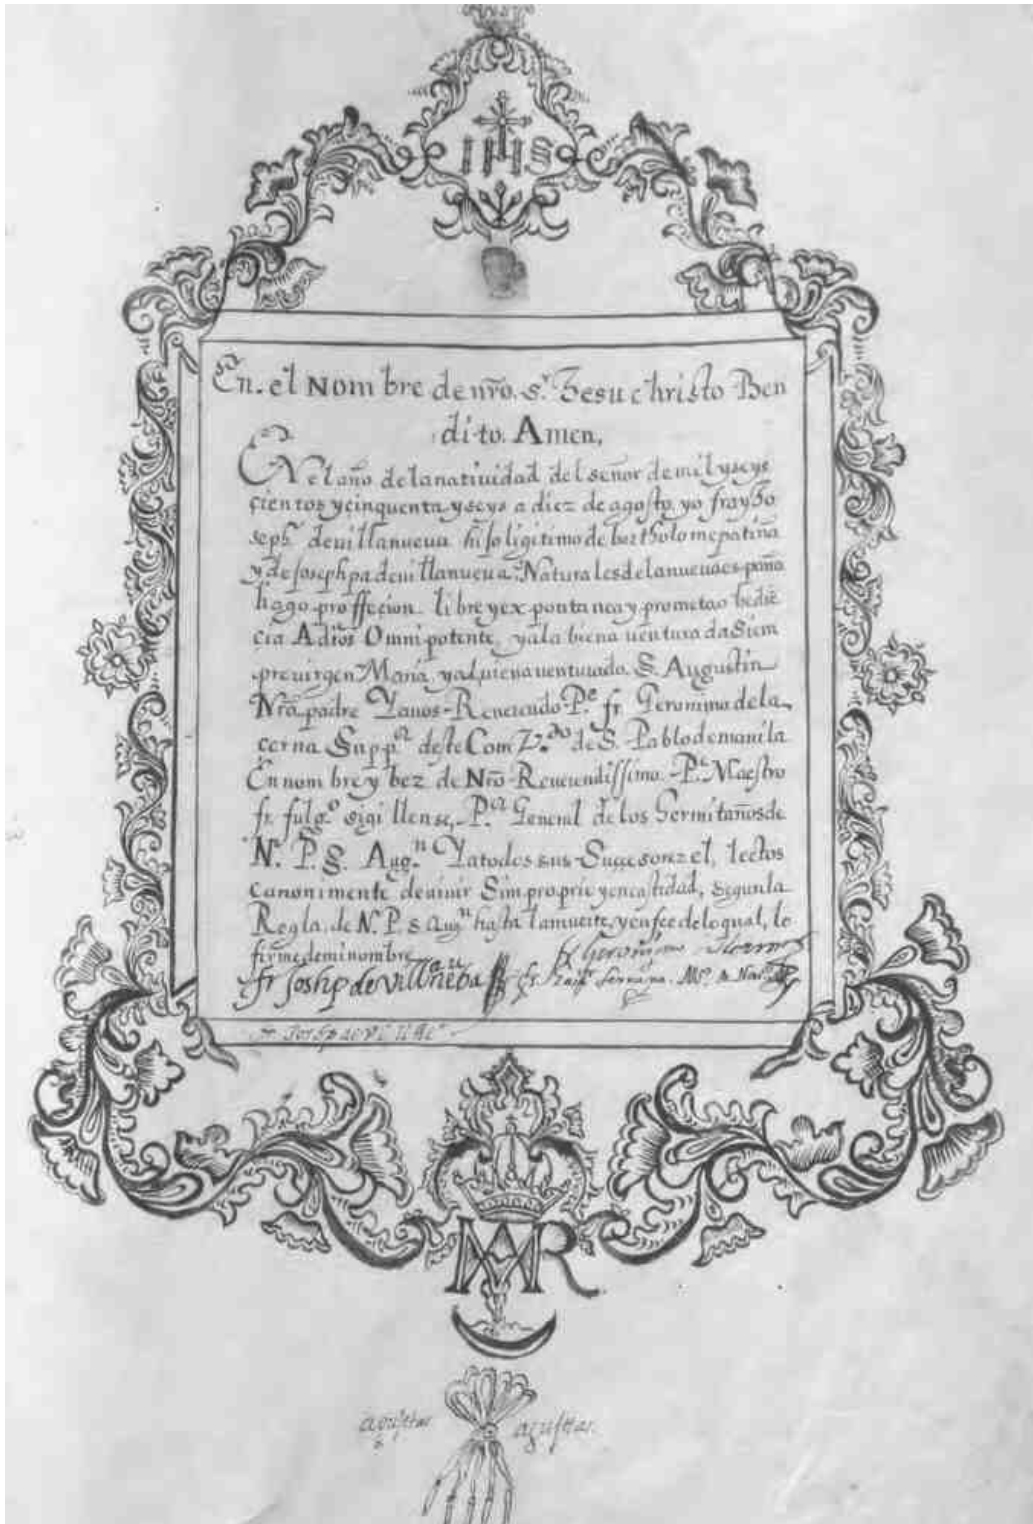 IHS
En. el Nombre de nrō. sʳ Jesu christo Ben
di·to. Amen,
EN el año de la natividad del señor de mil y seys
çientos y cinquenta y seys a diez de agosto, yo fray Jo
seph de villanueva hijo ligitimo de bartholome patiña
y de josephpa de villanueva. Naturales de la nueva es pañā
hago proffecion libre y ex pontanea y prometo o bediē
cia A diōs Omnipotente, y a la biena ventura da Siem
pre virgen Maria, y al viena venturado. S. Augustin
Nrō. padre Y a vos Reverendo P.ᵉ fr. Geronimo de la
cerna Supp.ᵒʳ deste Com.ᵗᵒ de S. Pablo de manila
En nombre y bez de Nrō Reverendissimo P.ᵉ Maestro
fr. fulg.ᵒ sigillense, P.ᵒʳ General de los Hermitaños de
N. P. S. Aug.ⁿ Y a todos sus Suççesorez el, lectos
canonimente de vivir Sim proprie y en castidad, segun la
Regla, de N. P. S. Augⁿ hasta la muerte, y en fee de lo qual, lo
firme de mi nombre
fr Geronimo
fr Joshp de Villanueba
MAR
agujetas
agujetas